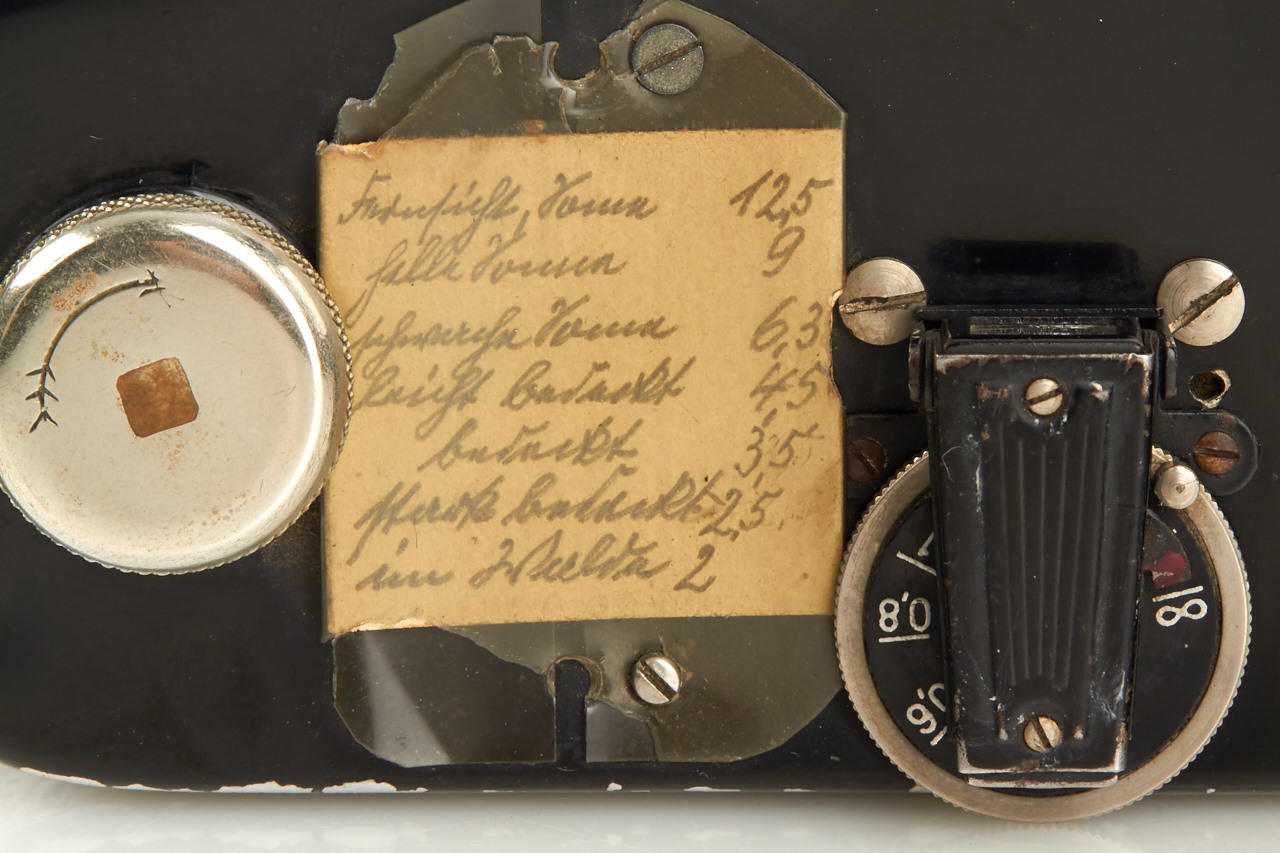 Fernsicht, Sonne 12,5
helle Sonne 9
schwache Sonne 6,3
leicht bedeckt 4,5
bedeckt 3,5
stark bedeckt 2,5
im Walde 2
0,8
∞